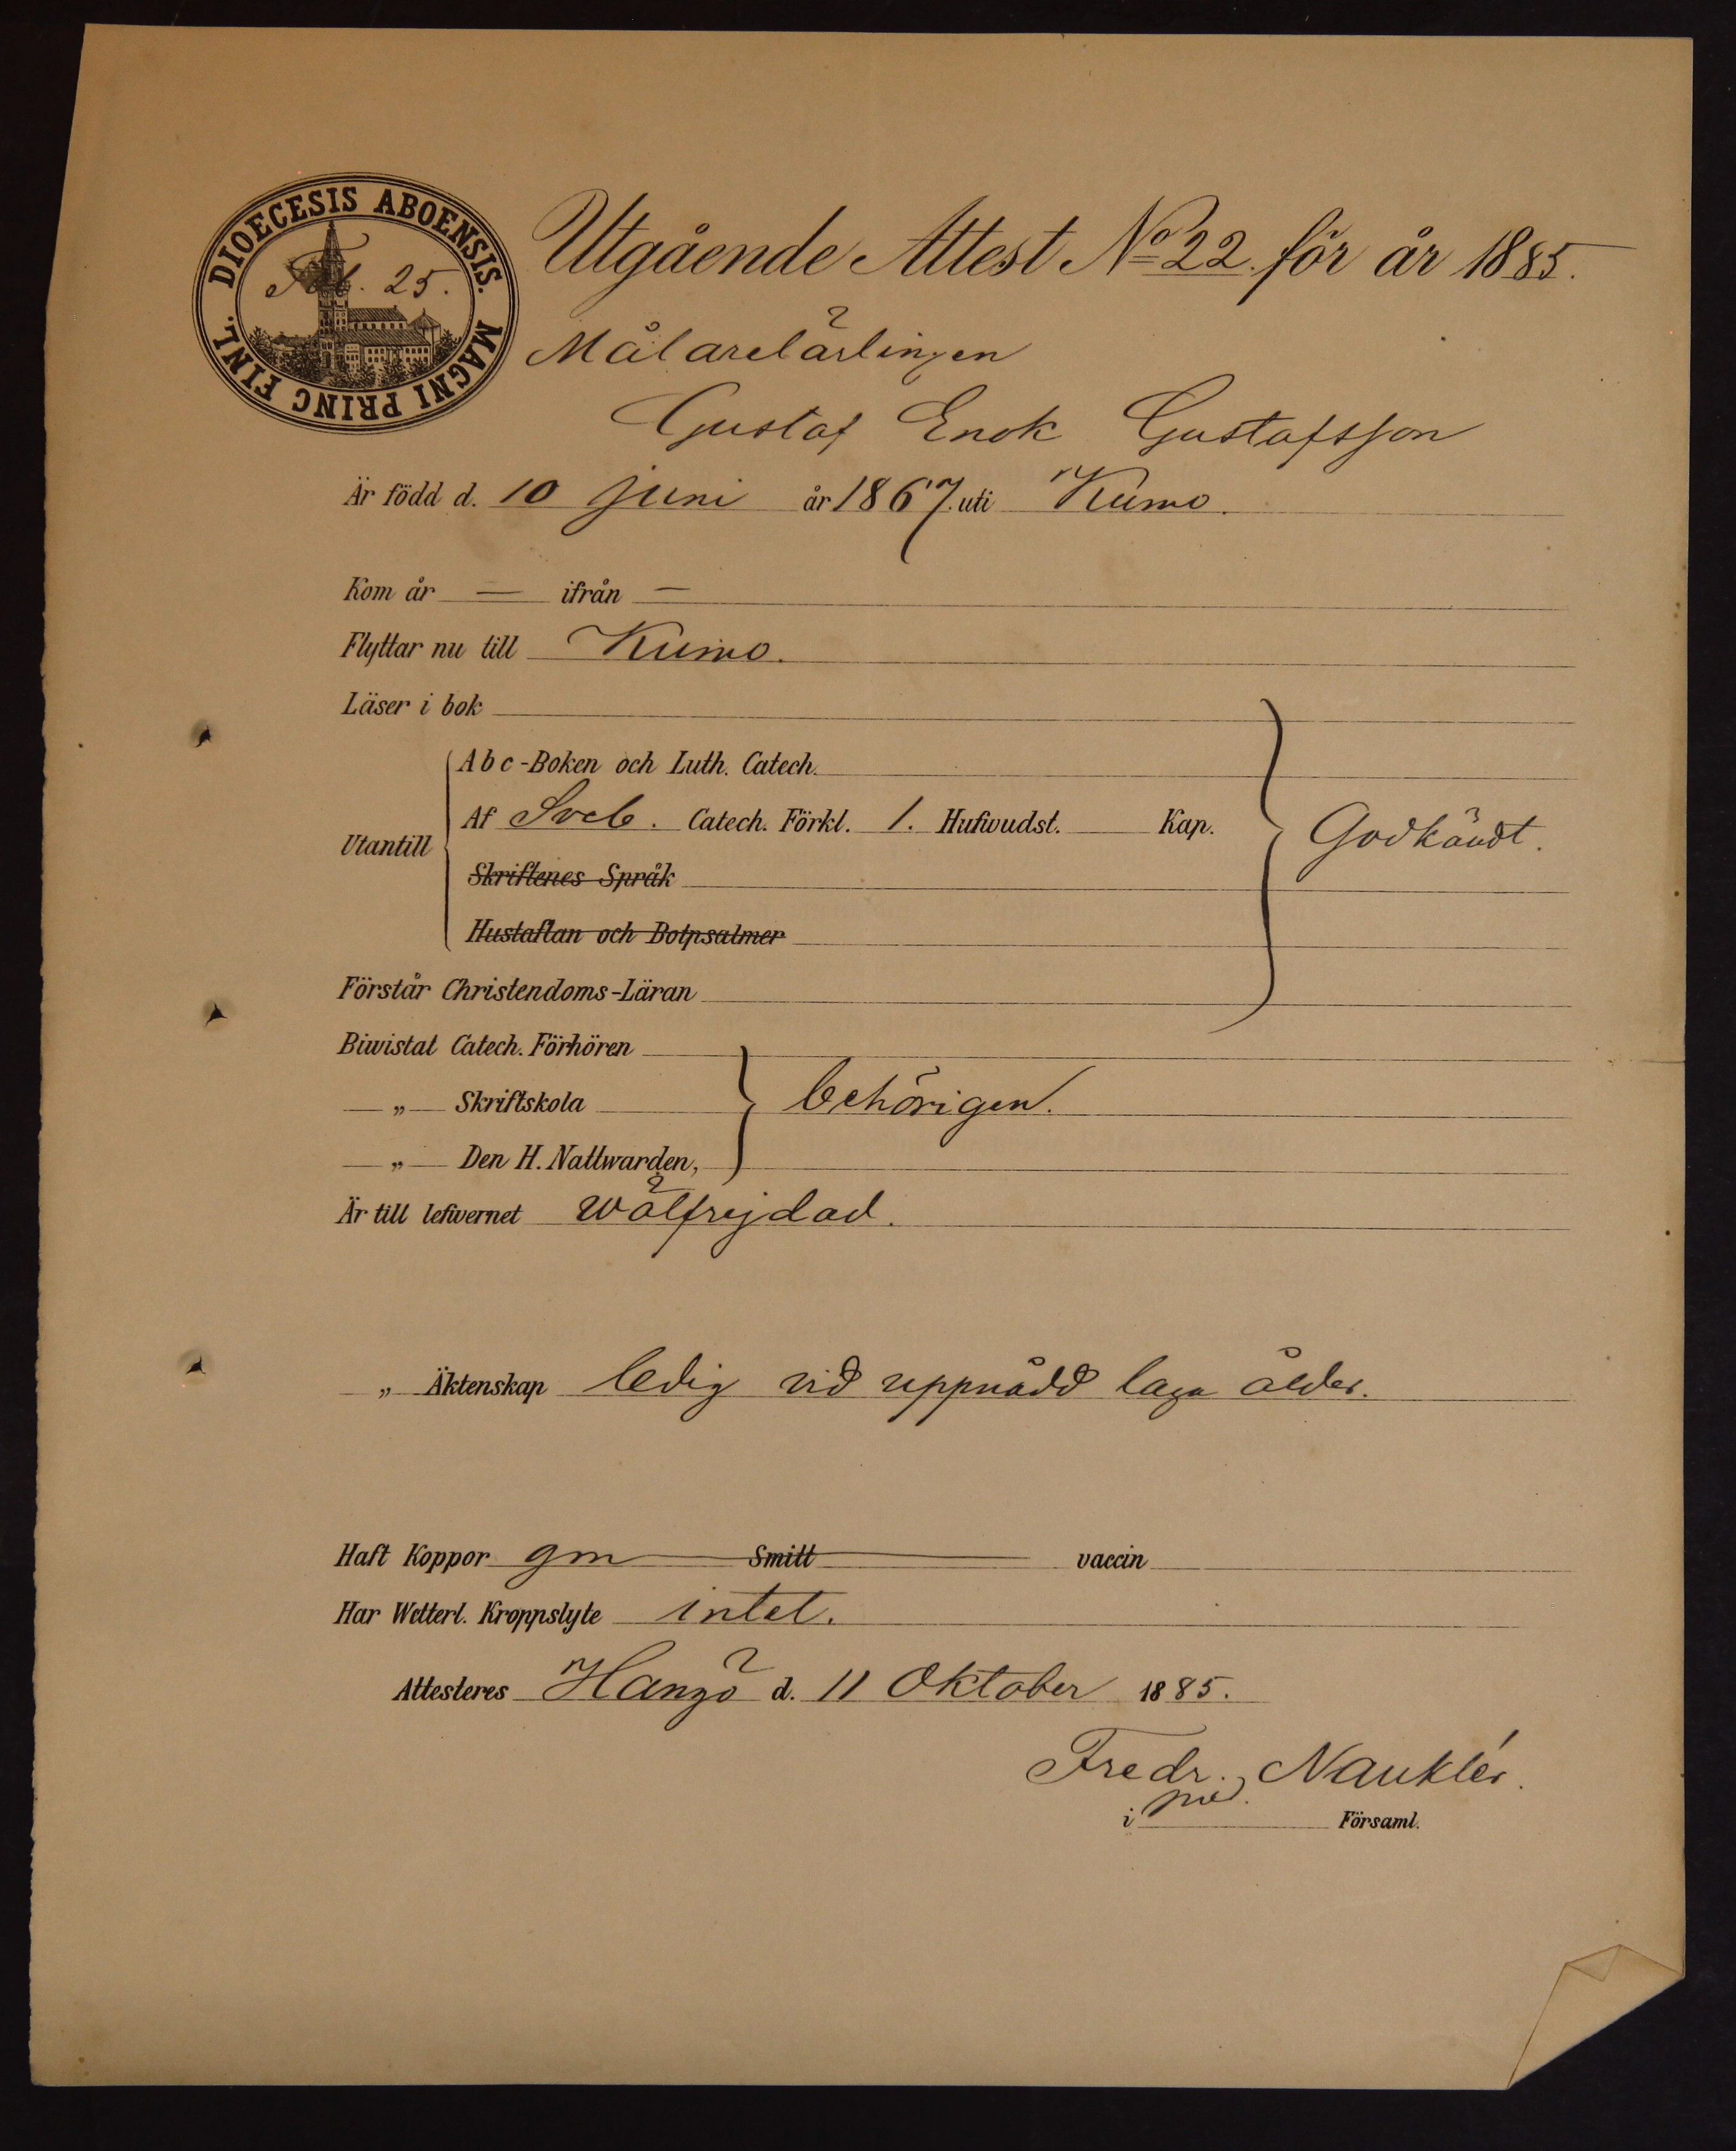 DIOECESIS ABOENSIS. MAGNI PRINC FINL.
Fol. 25.
Utgående Attest No 22. för år 1885.
Målarelärlingen
Gustaf Enok Gustafsson
Är född d. 10 juni år 1867. uti Kumo.
Kom år — ifrån —
Flyttar nu till Kumo.
Läser i bok
Utantill
Abc-Boken och Luth. Catech.
Af Sveb. Catech. Förkl. 1. Hufwudst. Kap. Godkändt.
Skriftenes Språk
Hustaflan och Botpsalmer
Förstår Christendoms-Läran
Biwistat Catech. Förhören
— „ — Skriftskola behörigen.
— „ — Den H. Nattwarden,
Är till lefwernet wälfrejdad.
— „ — Äktenskap ledig vid uppnådd laga ålder.
Haft Koppor gm Smitt vaccin
Har Wetterl. Kroppslyte intet.
Attesteres Hangö d. 11 Oktober 1885.
Fredr. Nauklér.
i Församl.